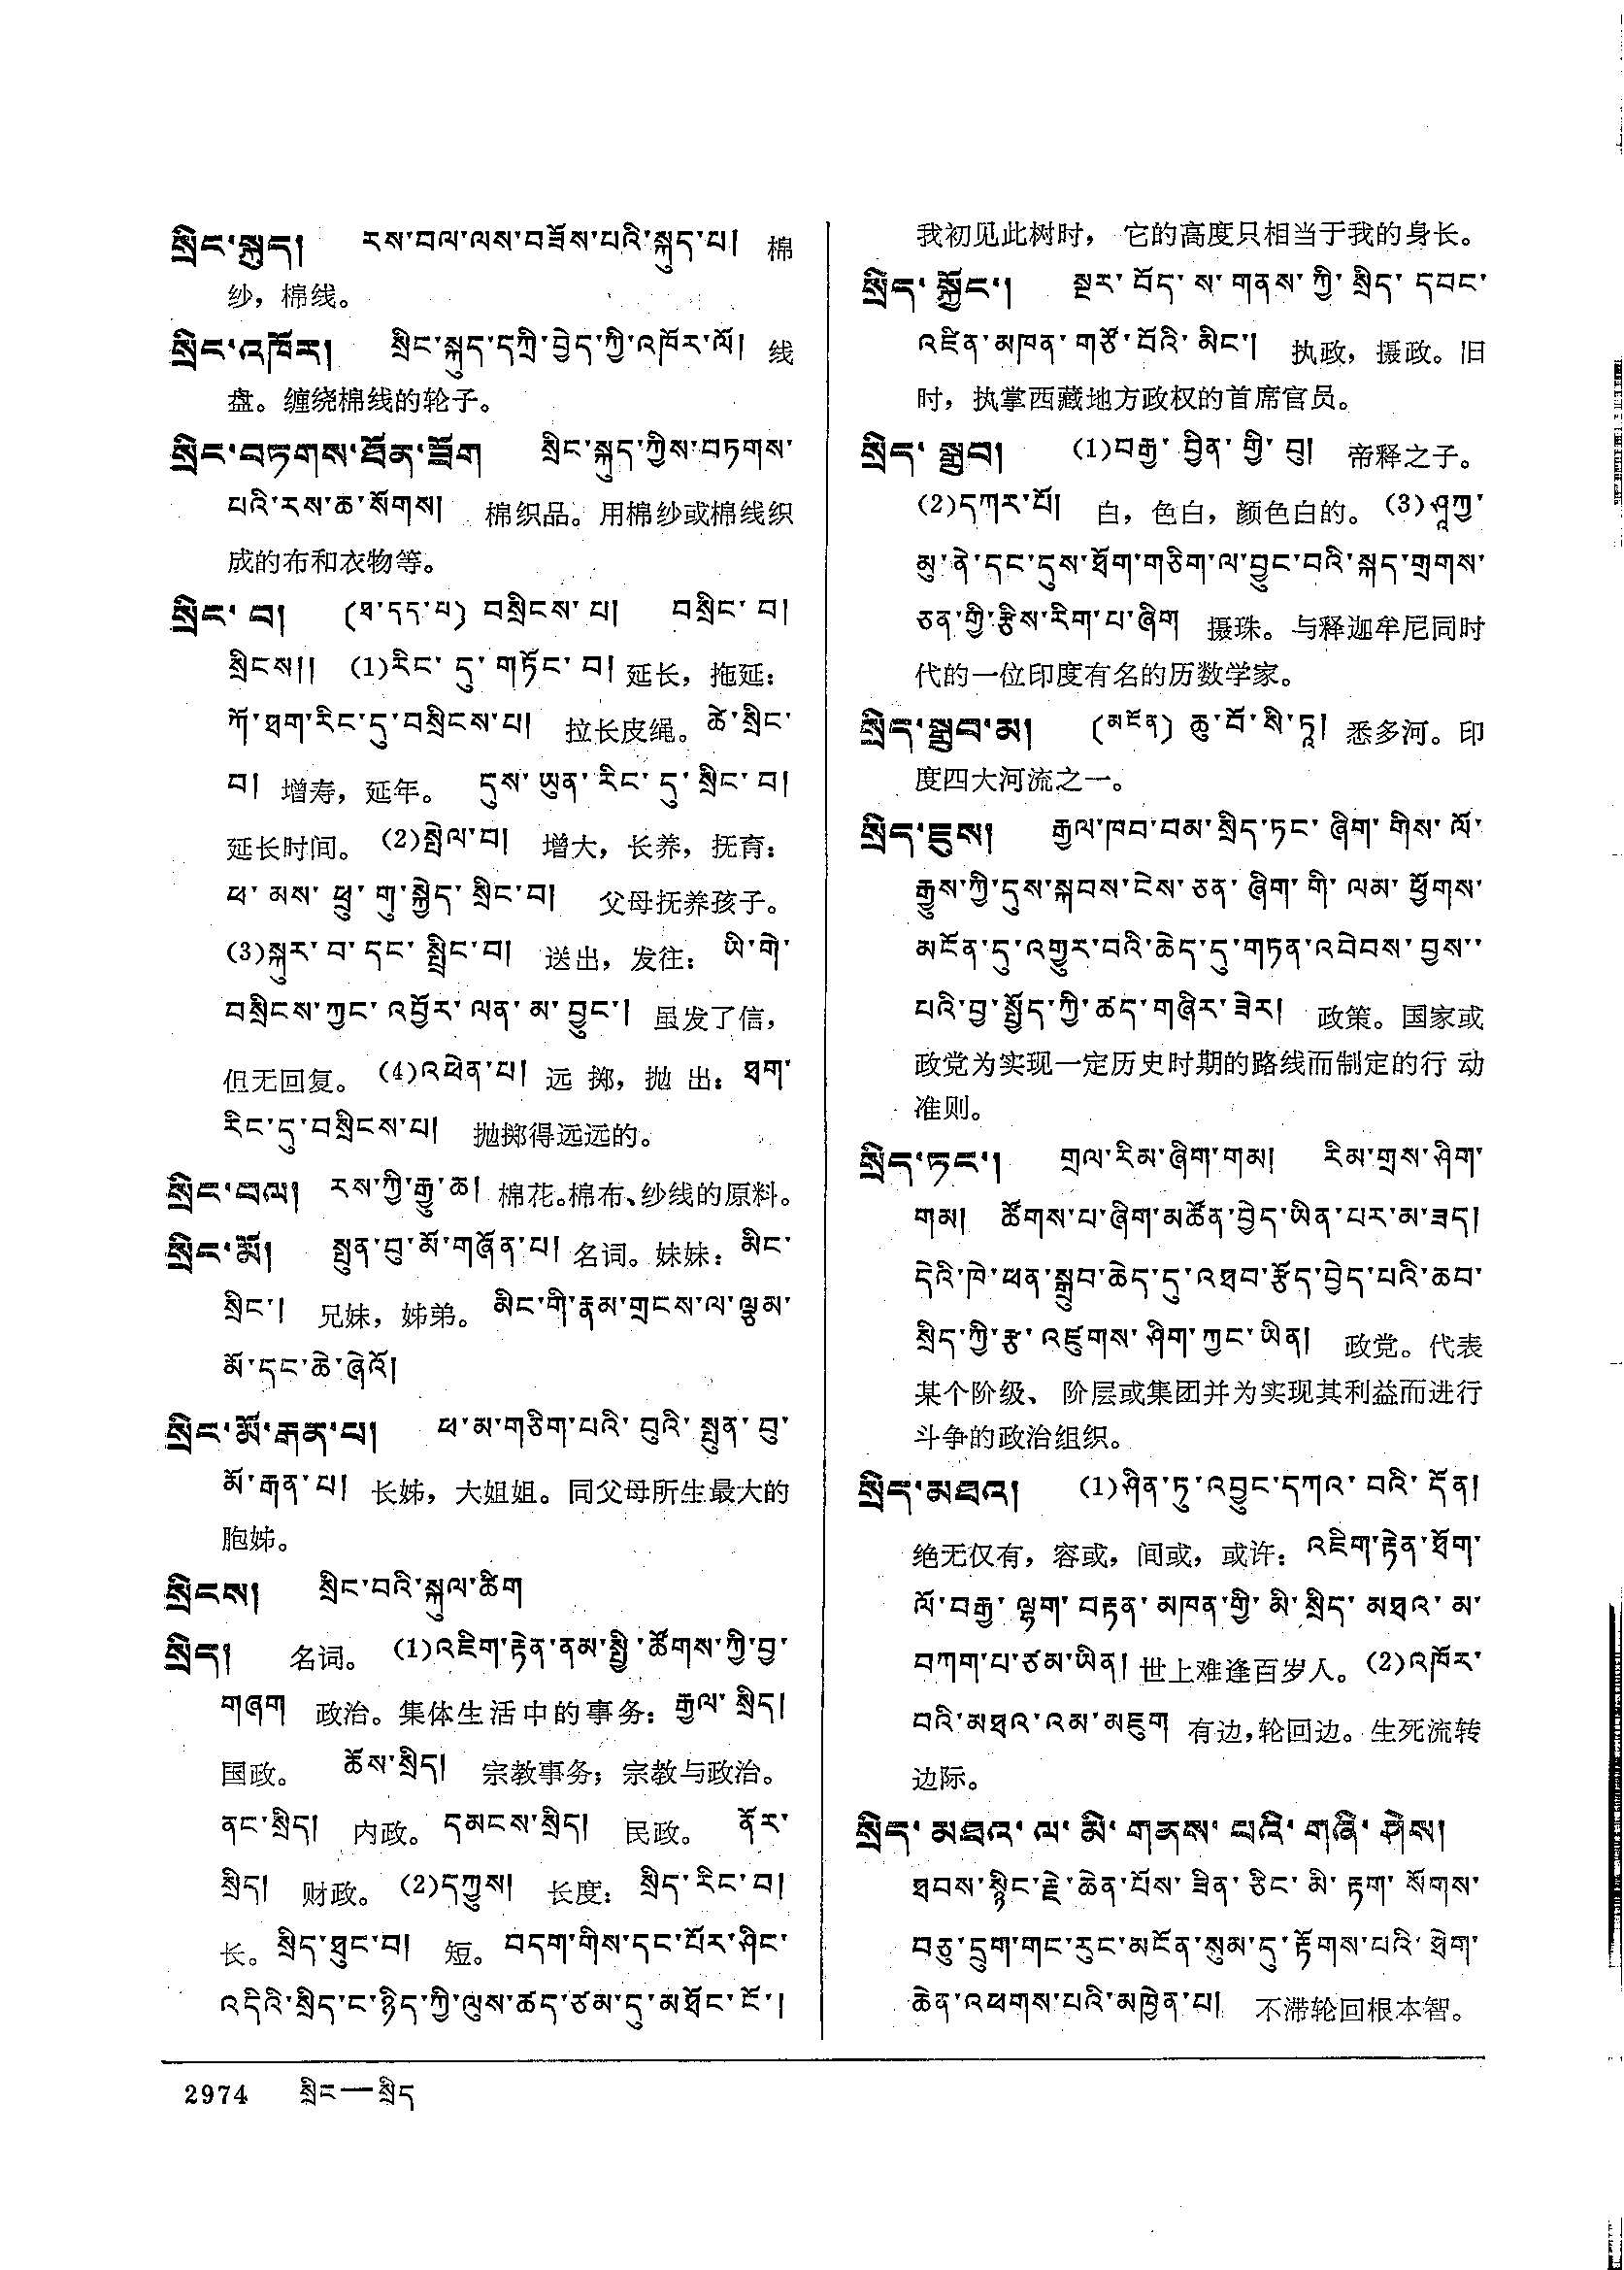 སྲིང་སྐུད། རས་བལ་ལས་བཟོས་པའི་སྐུད་པ། 棉
纱，棉线。
སྲིང་འཁོར། སྲིང་སྐུད་དཀྲི་བྱེད་ཀྱི་འཁོར་ལོ། 线
盘。缠绕棉线的轮子。
སྲིང་བཏགས་ཐོན་ཟོག སྲིང་སྐུད་ཀྱིས་བཏགས་
པའི་རས་ཆ་སོགས། 棉织品。用棉纱或棉线织
成的布和衣物等。
སྲིང་བ། (ཐ་དད་པ) བསྲིངས་པ། བསྲིང་བ།
སྲིངས།། (1)རིང་དུ་གཏོང་བ། 延长，拖延：
ཀོ་ཐག་རིང་དུ་བསྲིངས་པ། 拉长皮绳。ཚེ་སྲིང་
བ། 增寿，延年。 དུས་ཡུན་རིང་དུ་སྲིང་བ།
延长时间。(2)སྤེལ་བ། 增大，长养，抚育：
ཕ་མས་ཕྲུ་གུ་སྐྱེད་སྲིང་བ། 父母抚养孩子。
(3)སྐུར་བ་དང་སྤྲིང་བ། 送出，发往：ཡི་གེ་
བསྲིངས་ཀྱང་འབྱོར་ལན་མ་བྱུང་། 虽发了信，
但无回复。(4)འཕེན་པ། 远掷，抛出：ཐག་
རིང་དུ་བསྲིངས་པ། 抛掷得远远的。
སྲིང་བལ། རས་ཀྱི་རྒྱུ་ཆ། 棉花。棉布、纱线的原料。
སྲིང་མོ། སྤུན་བུ་མོ་གཞོན་པ། 名词。妹妹：མིང་
སྲིང་། 兄妹，姊弟。མིང་གི་རྣམ་གྲངས་ལ་ལྕམ་
མོ་དང་ཆེ་ཞེའོ།
སྲིང་མོ་རྒན་པ། ཕ་མ་གཅིག་པའི་བུའི་སྤུན་བུ་
མོ་རྒན་པ། 长姊，大姐姐。同父母所生最大的
胞姊。
སྲིངས། སྲིང་བའི་སྐུལ་ཚིག
སྲིད། 名词。(1)འཇིག་རྟེན་ནམ་སྤྱི་ཚོགས་ཀྱི་བྱ་
གཞག 政治。集体生活中的事务：རྒྱལ་སྲིད།
国政。 ཆོས་སྲིད། 宗教事务；宗教与政治。
ནང་སྲིད། 内政。དམངས་སྲིད། 民政。 ནོར་
སྲིད། 财政。(2)དཀྱུས། 长度：སྲིད་རིང་བ།
长。སྲིད་ཐུང་བ། 短。བདག་གིས་དང་པོར་ཤིང་
འདིའི་སྲིད་ང་ཉིད་ཀྱི་ལུས་ཚད་ཙམ་དུ་མཐོང་ངོ་།
我初见此树时，它的高度只相当于我的身长。
སྲིད་སྐྱོང་། སྔར་བོད་ས་གནས་ཀྱི་སྲིད་དབང་
འཛིན་མཁན་གཙོ་བོའི་མིང་། 执政，摄政。旧
时，执掌西藏地方政权的首席官员。
སྲིད་སྒྲུབ། (1)བརྒྱ་བྱིན་གྱི་བུ། 帝释之子。
(2)དཀར་པོ། 白，色白，颜色白的。(3)ཤཱཀྱ་
མུ་ནེ་དང་དུས་ཐོག་གཅིག་ལ་བྱུང་བའི་སྐད་གྲགས་
ཅན་གྱི་རྩིས་རིག་པ་ཞིག 摄珠。与释迦牟尼同时
代的一位印度有名的历数学家。
སྲིད་སྒྲུབ་མ། (མངོན) ཆུ་བོ་སི་ཏཱ། 悉多河。印
度四大河流之一。
སྲིད་ཇུས། རྒྱལ་ཁབ་བམ་སྲིད་ཏང་ཞིག་གིས་ལོ་
རྒྱུས་ཀྱི་དུས་སྐབས་ངེས་ཅན་ཞིག་གི་ལམ་ཕྱོགས་
མངོན་དུ་འགྱུར་བའི་ཆེད་དུ་གཏན་འབེབས་བྱས་་
པའི་བྱ་སྤྱོད་ཀྱི་ཚད་གཞིར་ཟེར། 政策。国家或
政党为实现一定历史时期的路线而制定的行动
准则。
སྲིད་ཏང་། གྲལ་རིམ་ཞིག་གམ། རིམ་གྲས་ཤིག་
གམ། ཚོགས་པ་ཞིག་མཚོན་བྱེད་ཡིན་པར་མ་ཟད།
དེའི་ཁེ་ཕན་སྒྲུབ་ཆེད་དུ་འཐབ་རྩོད་བྱེད་པའི་ཆབ་
སྲིད་ཀྱི་རྩ་འཛུགས་ཤིག་ཀྱང་ཡིན། 政党。代表
某个阶级、阶层或集团并为实现其利益而进行
斗争的政治组织。
སྲིད་མཐའ། (1)ཤིན་ཏུ་འབྱུང་དཀའ་བའི་དོན།
绝无仅有，容或，间或，或许：འཇིག་རྟེན་ཐོག་
ལོ་བརྒྱ་ལྷག་བརྟན་མཁན་གྱི་མི་སྲིད་མཐའ་མ་
བཀག་པ་ཙམ་ཡིན། 世上难逢百岁人。(2)འཁོར་
བའི་མཐའ་འམ་མཇུག 有边，轮回边。生死流转
边际。
སྲིད་མཐའ་ལ་མི་གནས་པའི་གཞི་ཤེས།
ཐབས་སྙིང་རྗེ་ཆེན་པོས་ཟིན་ཅིང་མི་རྟག་སོགས་
བཅུ་དྲུག་གང་རུང་མངོན་སུམ་དུ་རྟོགས་པའི་ཐེག་
ཆེན་འཕགས་པའི་མཁྱེན་པ། 不滞轮回根本智。
2974 སྲིང—སྲིད